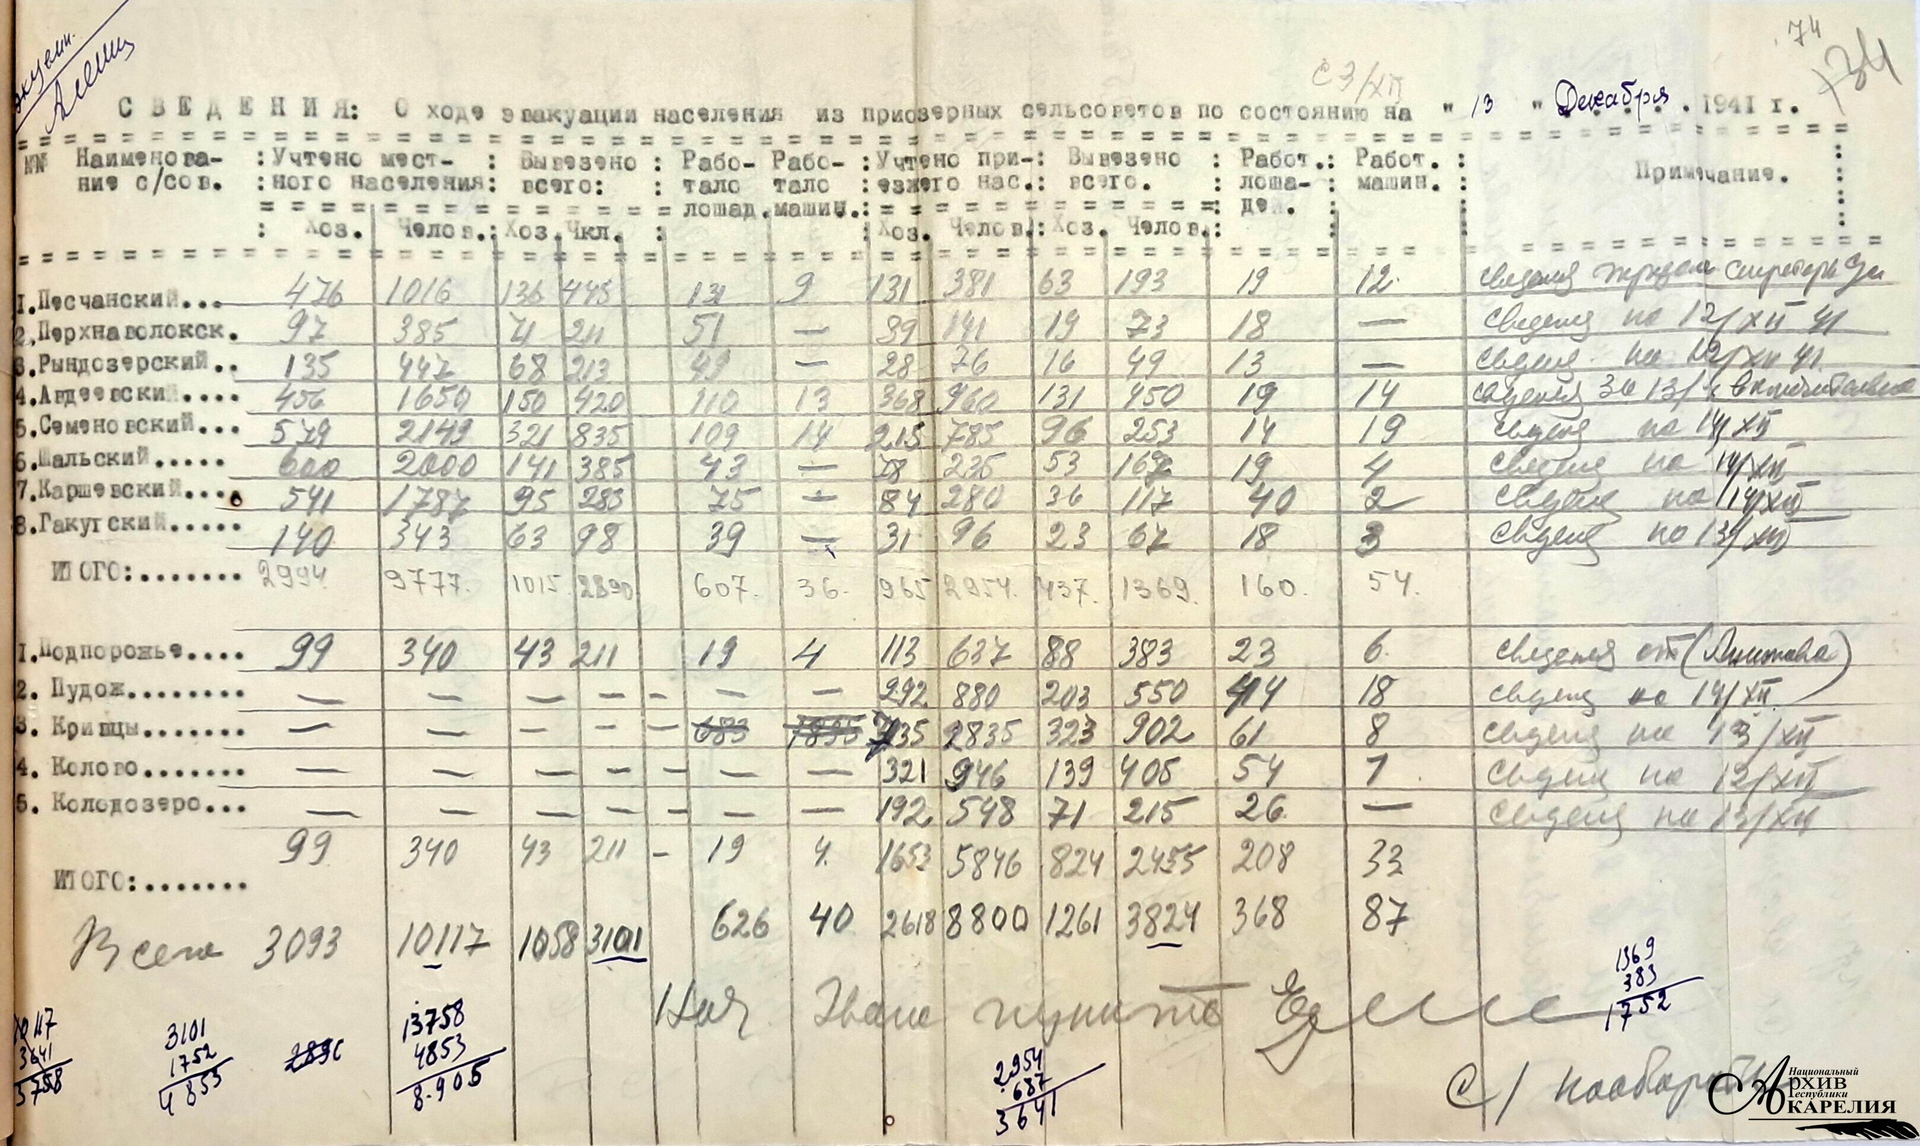 74
34
С 3/XII
С В Е Д Е Н И Я: О ходе эвакуации населения из приозерных сельсоветов по состоянию на " 13 " Декабря . 1941 г.
№№ Наименова- : Учтено мест- : Вывезено : Рабо- Рабо- : Учтено при-: Вывезено : Работ.: Работ. :
ние с/сов. : ного населения: всего: : тало тало : езжего нас.: всего. : лоша- : машин. : Примечание.
лошад. машин.: дей. :
: Хоз. Челов.: Хоз. Чкл. : : Хоз. Челов.: Хоз. Челов.:
1.Песчанский... 476 1016 136 445 131 9 131 381 63 193 19 12 сведения
2.Перхнаволокск. 97 385 41 211 51 — 39 141 19 73 18 — сведения на 12/XII 41
3.Рындозерский.. 135 447 68 213 49 — 28 76 16 49 13 — сведения на 12/XII 41
4.Авдеевский.... 456 1650 150 420 110 13 368 960 131 450 19 14 сведения за 13/ включительно
5.Семеновский... 549 2149 321 835 109 14 215 785 96 253 14 19 сведения на 14/XII
6.Шальский..... 600 2000 141 385 43 — 78 235 53 167 19 4 сведения на 14/XII
7.Каршевский.... 541 1787 95 283 75 — 84 280 36 117 40 2 сведения на 14/XII
8.Гакугский..... 140 343 63 98 39 — 31 96 23 67 18 3 сведения на 13/XII
ИТОГО:....... 2994. 9777. 1015. 2890 607. 36. 965 2954. 437. 1369. 160. 54.
1.Подпорожье.... 99 340 43 211 19 4 113 637 88 383 23 6 сведения от
2. Пудож........ — — — — — — — 292 880 203 550 44 18 сведения на 14/XII
3. Кривцы....... — — — — — 683 1835 735 2835 323 902 61 8 сведения на 13/XII
4. Колово....... — — — — — — — 321 946 139 405 54 1 сведения на 12/XII
5. Колодозеро... — — — — — — — 192 548 71 215 26 — сведения на 13/XII
99 340 43 211 — 19 4. 1653 5846 824 2455 208 33
ИТОГО:.......
Всего 3093 10117 1058 3101 626 40 2618 8800 1261 3824 368 87
Нач. Эвако пункта
1369
383
1752
10117
3641
3758
3101
1752
4853
2890
13758
4853
8.905
2954
687
3641
С/
Национальный
Архив
Республики
Карелия